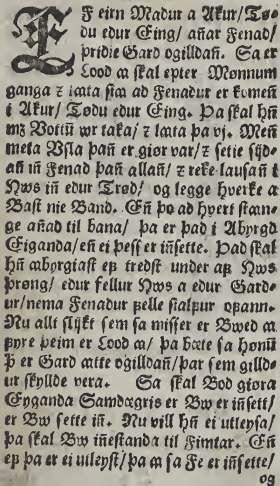 EF einn Madur a Akur/Tøø
du edur Eing/ añar Fenad/
pridie Gard ogilldañ. Sa er
Lood a skal epter Mønnum
ganga z lata siaa ad Fenadur er komeñ
i Akur/Tødu edur Eing. Þa skal hñ
mz Vottū wr taka/ z lata þa vj. Meñ
meta Vsla þañ er giør var/z setie sijd-
añ iñ Fenad þañ allañ/ z reke lausañ i
Hws iñ edur Trød/ og legge huerke a
Bast nie Band. Eñ þo ad huert stan-
ge añad til bana/ þa er þad i Abyrgd
Eiganda/ eñ ei þess er iñsette. Þad skal
hñ abyrgiast eþ tredst under aþ Hws
þrøng/ edur fellur Hws a edur Gard-
ur/nema Fenadur þelle sialþur oþann.
Nu allt slijkt sem sa misser er Bwed a
þyre þeim er Lood a/ þa bæte sa honū
þ er Gard atte ogilldañ/þar sem gilld-
ur skyllde vera. Sa skal Bod giøra
Eyganda Samdægris er Bw er iñsett/
er Bw sette iñ. Nu vill hñ ei utleysa/
þa skal Bw iñestanda til Fimtar. Eñ
eþ þa er ei utleyst/ þa a sa Fe er iñsette/
og